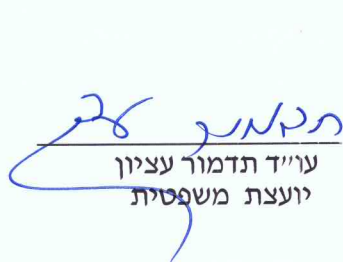 עו״ד תדמור עציון
יועצת משפטית